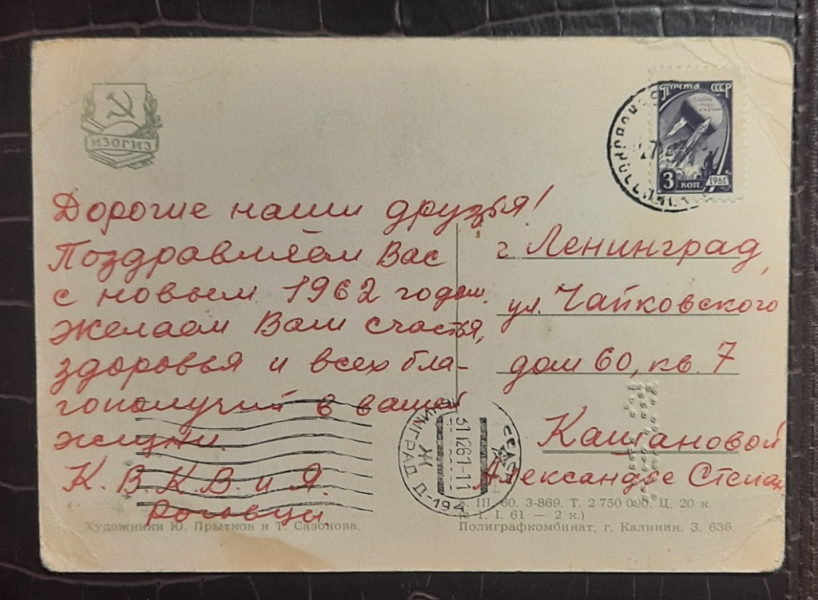 ИЗОГИЗ
ПОЧТА СССР
3 КОП
1961
Дорогие наши друзья!
Поздравляем Вас
с новым 1962 годом.
Желаем Вам счастья,
здоровья и всех бла-
гополучий в вашей
жизни.
К. В. К. В. и Я.
Роговцы
г. Ленинград,
ул. Чайковского
дом 60, кв. 7
Кашановой
Александре Степан
III. 60. 3-869. Т. 2 750 000. Ц. 20 к.
1. I. 61 — 2 к.)
Художники Ю. Прытков и Т. Сазонова.
Полиграфкомбинат, г. Калинин. З. 636